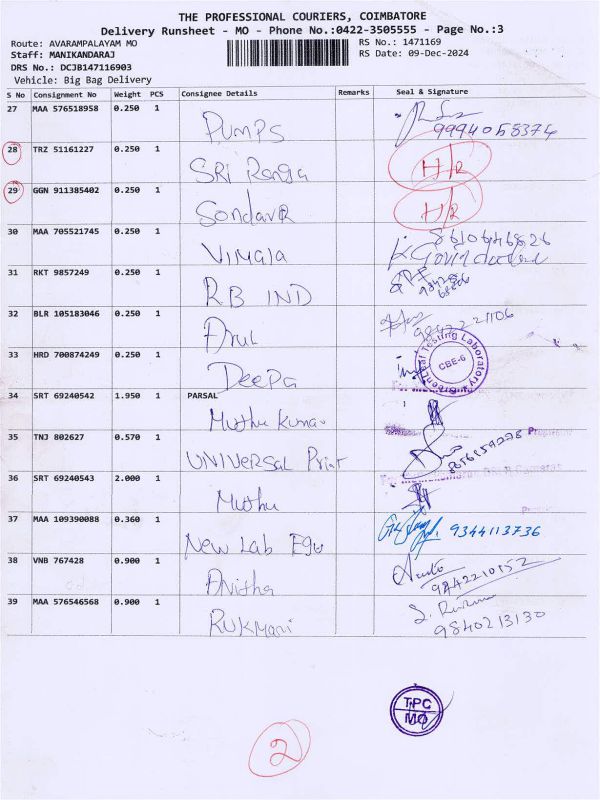 THE PROFESSIONAL COURIERS, COIMBATORE
Delivery Runsheet - MO - Phone No.:0422-3505555 - Page No.:3
Route: AVARAMPALAYAM MO
RS No.: 1471169
Staff: MANIKANDARAJ
RS Date: 09-Dec-2024
DRS No.: DCJB147116903
Vehicle: Big Bag Delivery
S No Consignment No Weight PCS Consignee Details Remarks Seal & Signature
27 MAA 576518958 0.250 1
PUMPS
9994058374
28 TRZ 51161227 0.250 1
SRI Ranga H/R
29 GGN 911385402 0.250 1
SondavR H/R
30 MAA 705521745 0.250 1
8610646826
Vimala
31 RKT 9857249 0.250 1
RB IND
32 BLR 105183046 0.250 1
Arul
9842221106
33 HRD 700874249 0.250 1
Deepa
Testing Laboratory
CBE-6
34 SRT 69240542 1.950 1 PARSAL
Muthu Kumar
35 TNJ 802627 0.570 1
UNIVERSAL Print
36 SRT 69240543 2.000 1
Muthu
37 MAA 109390088 0.360 1
New Lab Equ
9344113736
38 VNB 767428 0.900 1
Anitha
9842210152
39 MAA 576546568 0.900 1
RUKMANI
9840213130
TPC
MO
2